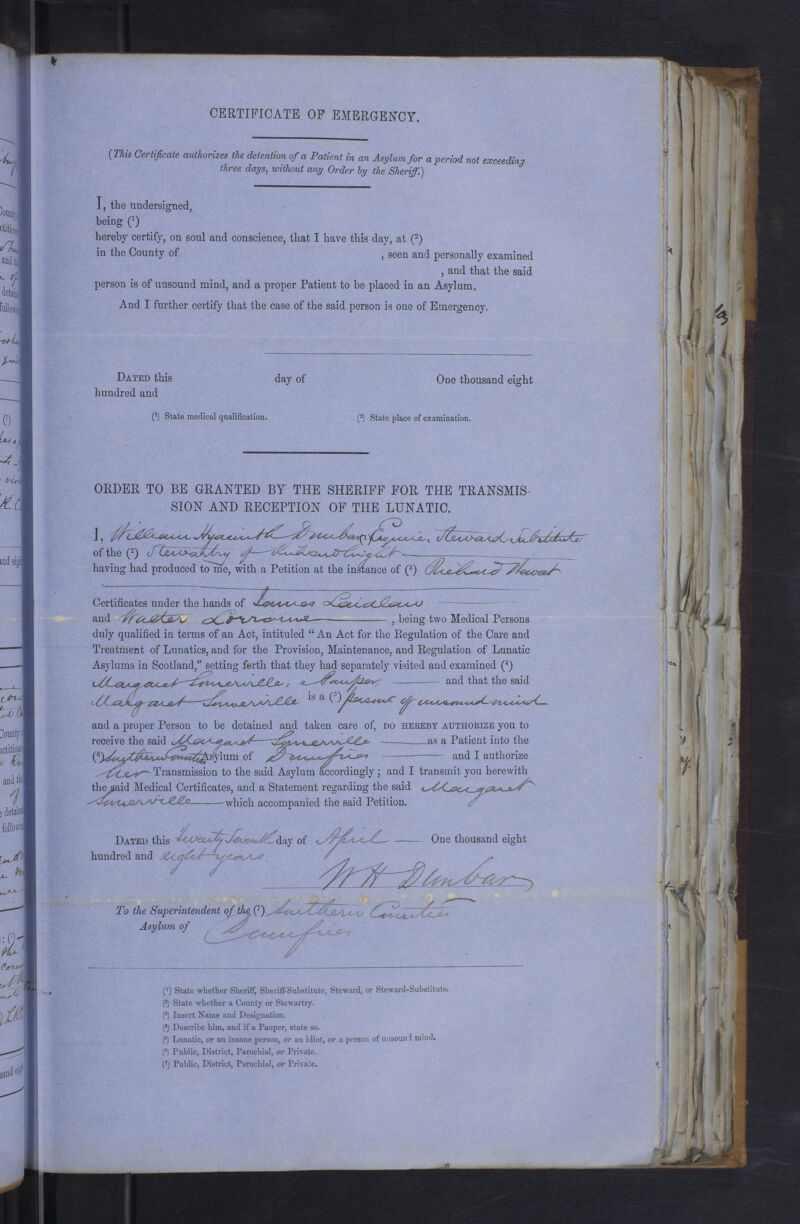 CERTIFICATE OF EMERGENCY.
(This Certificate authorizes the detention of a Patient in an Asylum for a period not exceeding
three days, without any Order by the Sheriff.)
I, the undersigned,
being (¹)
hereby certify, on soul and conscience, that I have this day, at (²)
in the County of , seen and personally examined
, and that the said
person is of unsound mind, and a proper Patient to be placed in an Asylum.
And I further certify that the case of the said person is one of Emergency.
DATED this day of One thousand eight
hundred and
(¹) State medical qualification. (²) State place of examination.
ORDER TO BE GRANTED BY THE SHERIFF FOR THE TRANSMIS-
SION AND RECEPTION OF THE LUNATIC.
I, William Hyacinth Dunbar (¹) Esquire, Steward Substitute
of the (²) Stewartry of Kirkcudbright
having had produced to me, with a Petition at the instance of (³) Richard Hewat
Certificates under the hands of James Laidlaw
and Walter Lorraine , being two Medical Persons
duly qualified in terms of an Act, intituled “An Act for the Regulation of the Care and
Treatment of Lunatics, and for the Provision, Maintenance, and Regulation of Lunatic
Asylums in Scotland,” setting forth that they had separately visited and examined (⁴)
Margaret Somerville, a Pauper and that the said
Margaret Somerville is a (⁵) person of unsound mind
and a proper Person to be detained and taken care of, DO HEREBY AUTHORIZE you to
receive the said Margaret Somerville as a Patient into the
(⁶) Southern Counties Asylum of Dumfries and I authorize
her Transmission to the said Asylum accordingly ; and I transmit you herewith
the said Medical Certificates, and a Statement regarding the said Margaret
Somerville which accompanied the said Petition.
DATED this twenty seventh day of April One thousand eight
hundred and eight years
W H Dunbar
To the Superintendent of the (⁷) Southern Counties
Asylum of Dumfries
(¹) State whether Sheriff, Sheriff-Substitute, Steward, or Steward-Substitute.
(²) State whether a County or Stewartry.
(³) Insert Name and Designation.
(⁴) Describe him, and if a Pauper, state so.
(⁵) Lunatic, or an insane person, or an idiot, or a person of unsound mind.
(⁶) Public, District, Parochial, or Private.
(⁷) Public, District, Parochial, or Private.